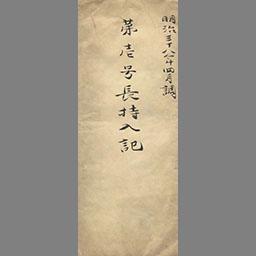 明治三十八年四月調
第壱号長持入記